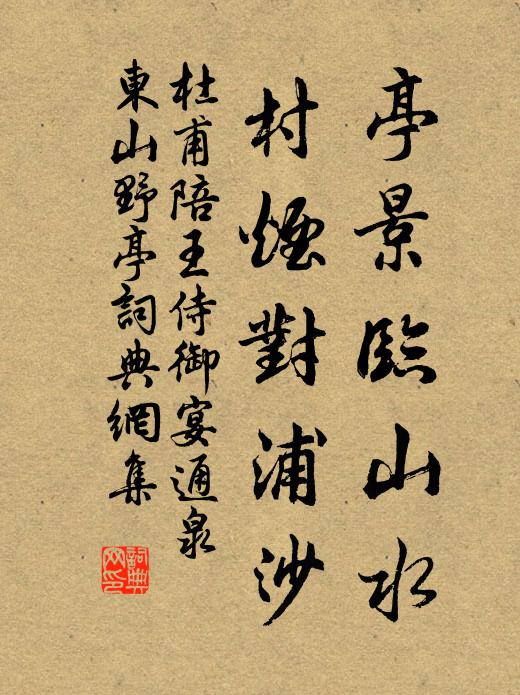 亭景臨山水
村煙對浦沙
杜甫陪王侍御宴通泉
東山野亭詞典網集
詞典
网印